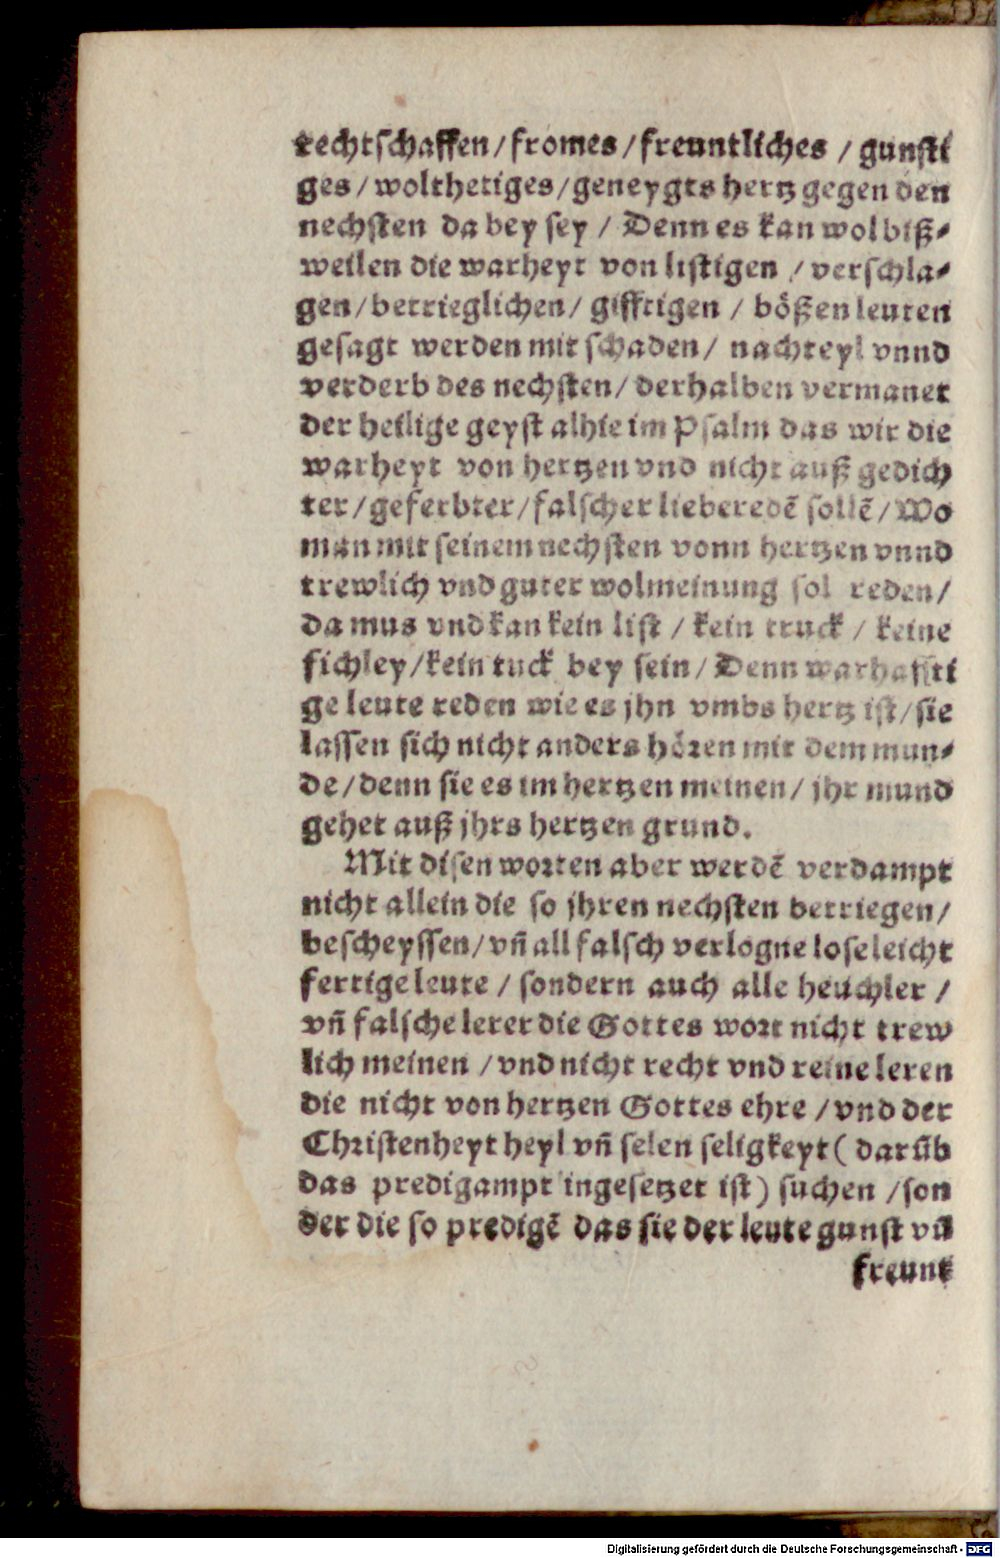 rechtschaffen/fromes/freuntliches / gunsti
ges/wolthetiges/geneygts hertz gegen den
nechsten da bey sey / Denn es kan wol biß⸗
weilen die warheyt von listigen / verschla⸗
gen/betrieglichen/ gifftigen / bößen leuten
gesagt werden mit schaden/ nachteyl vnnd
verderb des nechsten/ derhalben vermanet
der heilige geyst alhie im Psalm das wir die
warheyt von hertzen vnd nicht auß gedich
ter/geferbter/falscher liebe redē sollē/Wo
man mit seinem nechsten vonn hertzen vnnd
trewlich vnd guter wolmeinung sol reden/
da mus vnd kan kein list / kein truck / keine
fichley/kein tuck bey sein/ Denn warhaffti
ge leute reden wie es jhn vmbs hertz ist/sie
lassen sich nicht anders hören mit dem mun⸗
de/denn sie es im hertzen meinen/ jhr mund
gehet auß jhrs hertzen grund.
Mit disen worten aber werdē verdampt
nicht allein die so jhren nechsten betriegen/
bescheyssen/vñ all falsch verlogne lose leicht
fertige leute / sondern auch alle heuchler /
vñ falsche lerer die Gottes wort nicht trew
lich meinen /vnd nicht recht vnd reine leren
die nicht von hertzen Gottes ehre /vnd der
Christenheyt heyl vñ selen seligkeyt ( darūb
das predigampt ingesetzet ist) suchen /son
der die so predigē das sie der leute gunst vñ
freunt
Digitalisierung gefördert durch die Deutsche Forschungsgemeinschaft - DFG